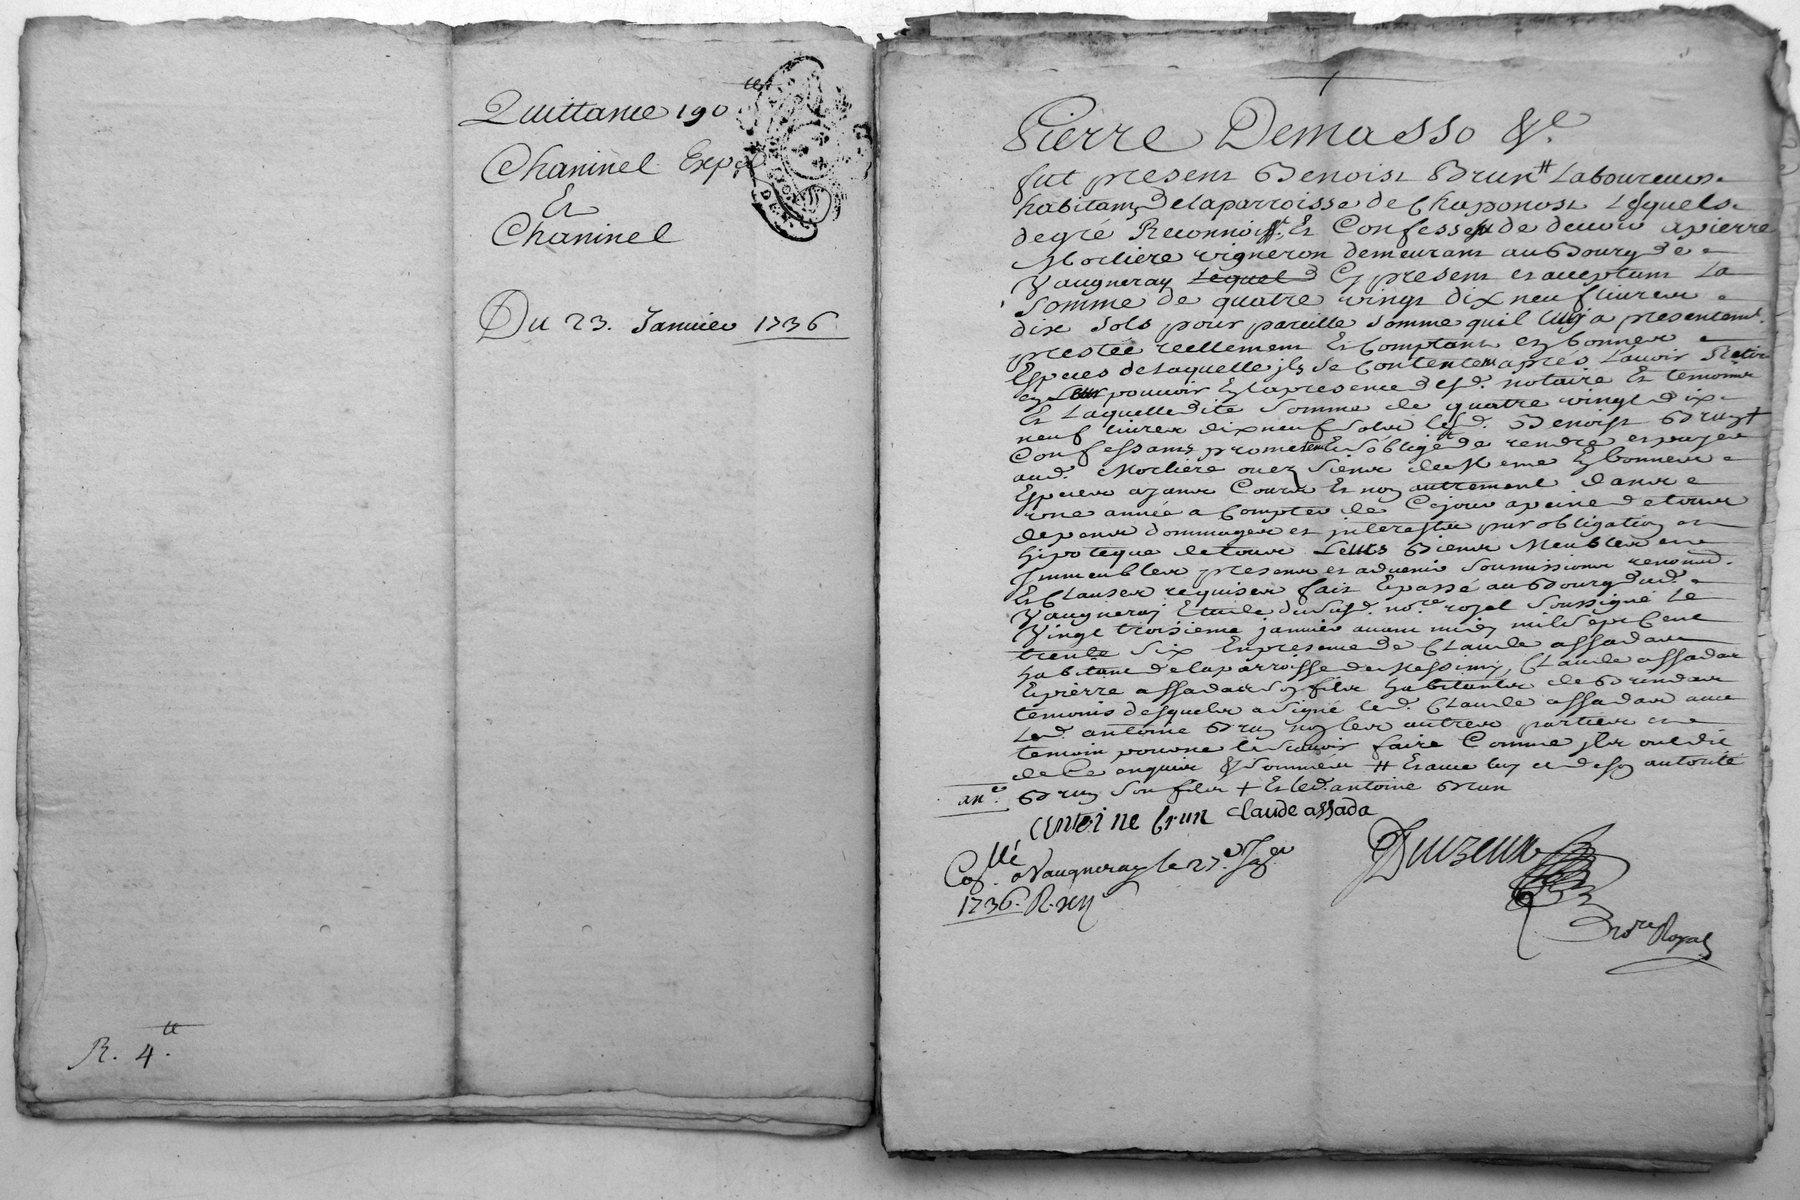 Quittance 190 ₶
Chaninel Exp.
Et
Chaninel
Du 23. Janvier 1736
R. 4 ₶.
Pierre Demasso &c.
fut present Benoist Brun # Laboureurs
habitants de la parroisse de Chaponost Lesquels
de gre Reconnoist. Et Confessent de devoir a pierre
Morliere vigneron demeurant au Bourg de
Vaugneray Lequel Cy present et acceptant La
Somme de quatre vingt dix neuf livres
dix sols pour pareille somme quil luy a presentemt.
prestée reellement Et Comptant en bonnes
Especes de laquelle ils se Contentent aprés Lavoir Retiré
en Leur pouvoir En la presence desd. notaire Et temoins
Et Laquelle dite Somme de quatre vingt dix
neuf livres dix neuf sols lesd. Benoist Brun +
Confessants promettent & sobligent de rendre et payer
aud. Morliere ou es siens de Meme En bonnes
Especes ayant Cours Et non autrement dans
une année a Compter de Cejour a peine de tous
depens dommages et interests par obligation et
hipoteque de tous Leurs Biens Meubles et
Immeubles presents et advenir Soumissions renond.
Et Clauses requises fait & passé au Bourg dud.
Vaugneray Etude du susd. nore. royal Soussigné Le
Vingt troisieme janvier avant midy mil sept Cent
trente six En presence de Claude assadas
habitant de la parroisse de Messimy, Claude assadas
& pierre assadas son fils habitants de Brindas
temoins desquels a signé led. Claude assadas avec
Led. antoine Brun non les autres parties et
temoin pour ne le scavoir faire Comme ils ont dit
de Ce enquis & Sommes # Et avec luy et de son autorité
ane. Brun son fils + Et led. antoine Brun
antoine brun claude assada
Collé. a Vaugneray le 27e. Jer.
1736. R. xii s
nore Royal